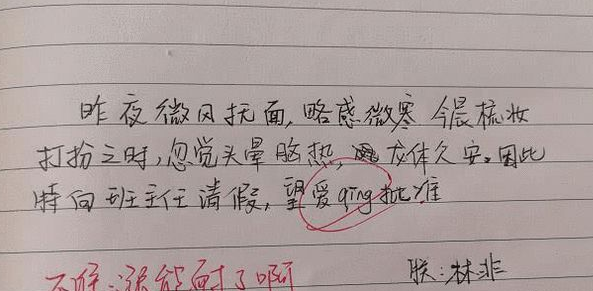 昨夜微风抚面,略感微寒 今晨梳妆
打扮之时,忽觉头晕脑热, 龙体欠安。因此
特向班主任请假,望爱qing批准
不准:涨能耐了啊
朕:林非